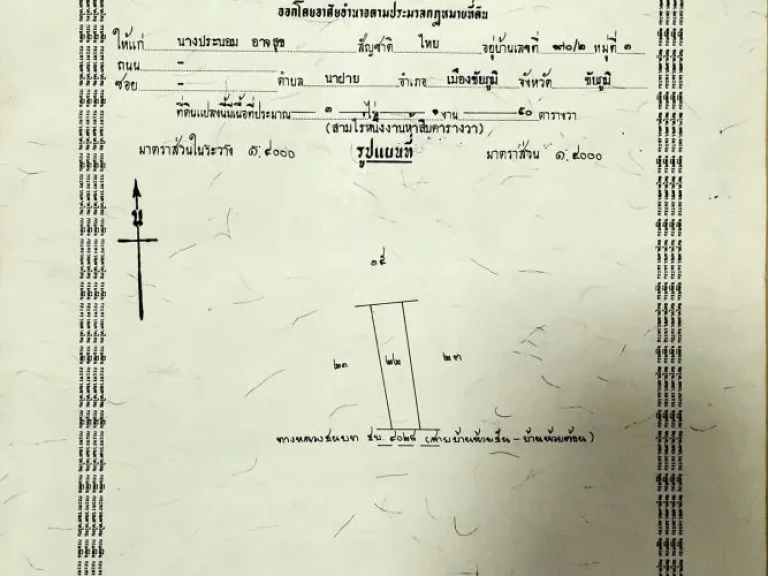 ออกโดยอาศัยอำนาจตามประมวลกฎหมายที่ดิน
ให้แก่ นางประนอม อาจสุข สัญชาติ ไทย อยู่บ้านเลขที่ ๗๐/๒ หมู่ที่ ๑
ถนน -
ซอย - ตำบล นาฝาย อำเภอ เมืองชัยภูมิ จังหวัด ชัยภูมิ
ที่ดินแปลงนี้มีเนื้อที่ประมาณ ๓ ไร่ ๑ งาน ๕๐ ตารางวา
(สามไร่หนึ่งงานห้าสิบตารางวา)
มาตราส่วนในระวาง ๑:๔๐๐๐ รูปแผนที่ มาตราส่วน ๑:๔๐๐๐
น
๑๕
๒๑ ๒๒ ๒๓
ทางหลวงชนบท ชย. ๔๐๒๘ (สาย บ้านห้วยชัน - บ้านห้วยต้อน)